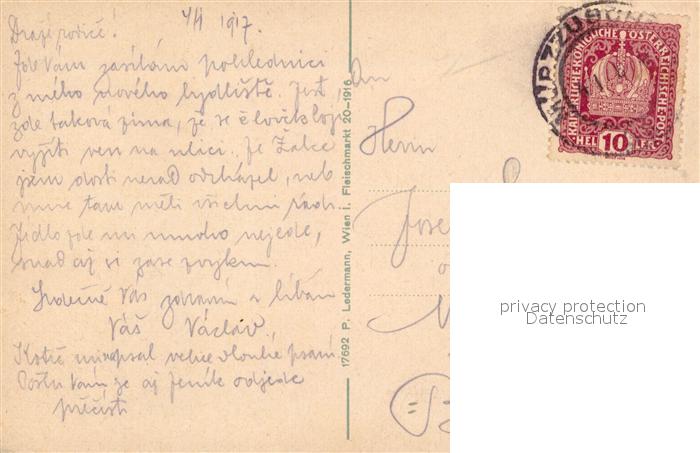 Drazí rodiče! 4/II 1917.
Zde Vám zasílám pohlednici
z mého nového bydliště. Jest
zde taková zima, že se člověk bojí
vyjíti ven na ulici. Ze Žatce
jsem dosti nerad odcházel, neb
mne tam měli všichni rádi.
Jídlo zde mi mnoho nejede,
snad až si zase zvyknu.
Srdečně Vás zdraví a líbám
Váš Václav.
psal velice dlouhé psaní
Pošlu Vám je až odjede
přečísti
17692 P. Ledermann, Wien I. Fleischmarkt 20-1916
An
Herrn
Jose
KAISERLICHE KÖNIGLICHE ÖSTERREICHISCHE POST
HEL 10 LER
MÜRZZUSCHLAG
privacy protection
Datenschutz